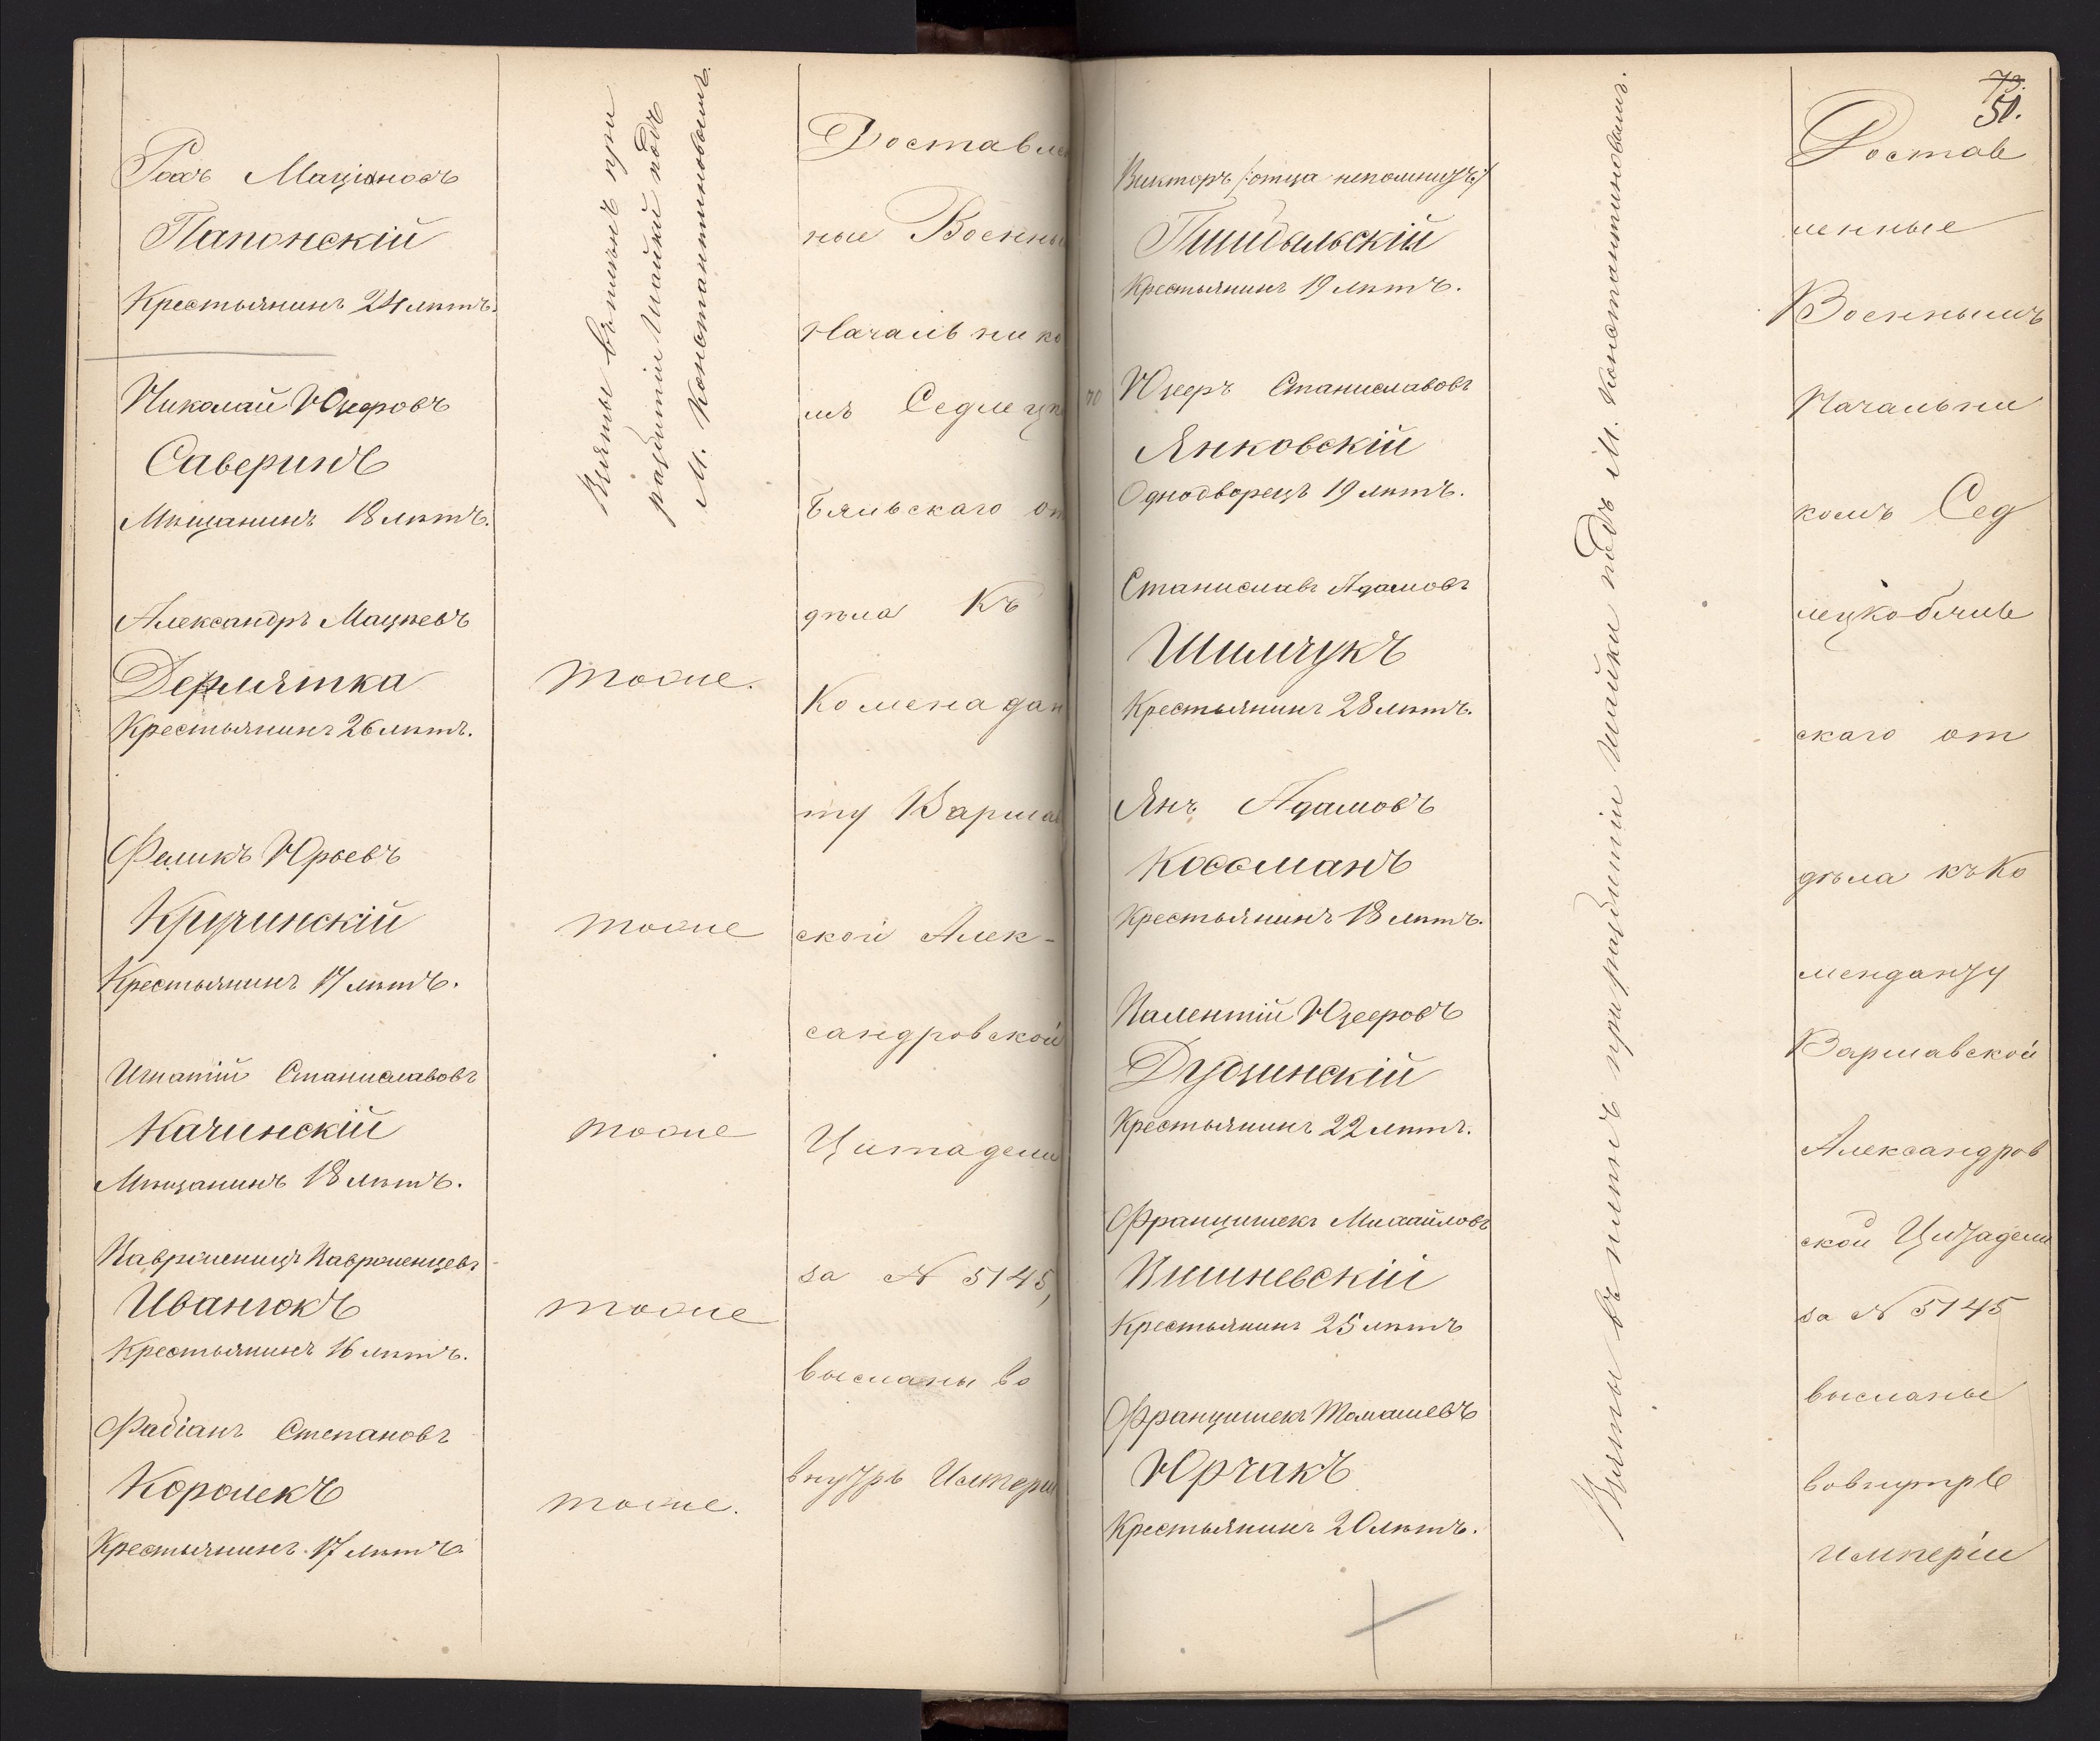 Рохъ Маціоносъ
Папонскій
Крестьянинъ 24 лѣтъ.
Николай Юзефовъ
Саверинъ
Мѣщанинъ 18 лѣтъ.
Александръ Мацѣевъ
Дермятка
Крестьянинъ 26 лѣтъ.
Феликъ Юрьевъ
Кручинскій
Крестьянинъ 17 лѣтъ.
Игнатій Станиславовъ
Качинскій
Мѣщанинъ 18 лѣтъ.
Лавронецъ
Иванюкъ
Крестьянинъ 16 лѣтъ.
Фабіанъ Степановъ
Королекъ
Крестьянинъ 17 лѣтъ.
Взятые въ плѣнъ при
разбитіи шайки подъ
М. Константиновымъ.
тоже.
тоже
тоже
тоже
тоже.
Доставлен
ные Военны
Начальнико
мъ Седлецко
Бяльскаго от
дѣла Къ
Коменадан
ту Варшав
ской Алек-
сандровской
Цитадели
за № 5145,
высланы во
внутрь Имперіи
73.
50.
Викторъ /:отца непомнитъ:/
Пшибыльскій
Крестьянинъ 19 лѣтъ.
70
Юзефъ Станиславовъ
Янковскій
Однодворецъ 19 лѣтъ.
Станиславъ Адамовъ
Шимчукъ
Крестьянинъ 28 лѣтъ.
Янъ Адамовъ
Косьманъ
Крестьянинъ 18 лѣтъ.
Валентій Юзефовъ
Дудзинскій
Крестьянинъ 22 лѣтъ.
Францишекъ Михайловъ
Вишневскій
Крестьянинъ 25 лѣтъ
Францишекъ Томашевъ
Юрчакъ
Крестьянинъ 20 лѣтъ.
Взяты въ плѣнъ при разбитіи шайки подъ М. Константиновымъ.
Достав
ленные
Военнымъ
Начальни
комъ Сед
лецкобяль
скаго от
дѣла къ Ко
менданту
Варшавской
Александров
ской Цитадели
за № 5145
высланы
вовнутрь
имперіи